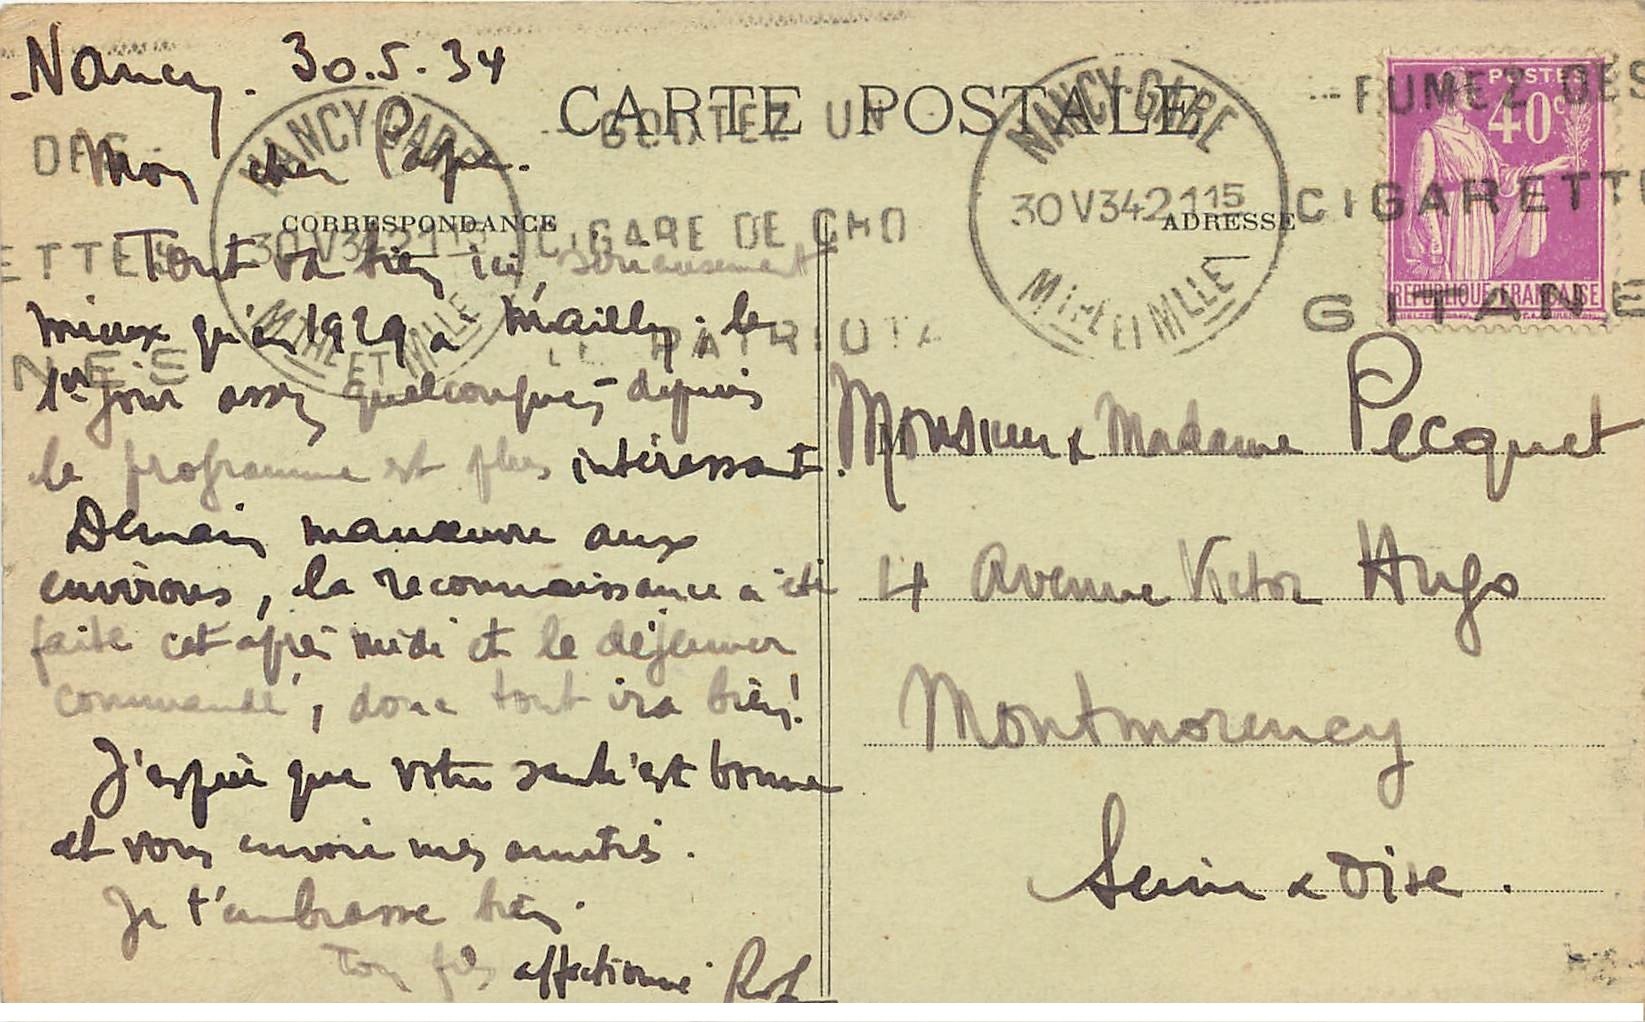 Nancy. 30.5.34
CARTE POSTALE
Mon cher Papa.
CORRESPONDANCE
Tout va bien ici, sérieusement
mieux qu'en 1929 à Mailly; le
1er jour assez quelconque, depuis
le programme est plus intéressant.
Demain manœuvre aux
environs, la reconnaissance a été
faite cet après midi et le déjeuner
commandé, donc tout ira bien!
J'espère que votre santé est bonne
et vous envoie mes amitiés.
Je t'embrasse bien.
Ton fils affectionné
NANCY-GARE
30 V 34 21 15
MTHE ET MLLE
GOUTEZ UN
CIGARE DE CHO
NANCY-GARE
30 V 34 21 15
MTHE ET MLLE
FUMEZ DES
CIGARETTE
GITANE
DES
ETTES
NES
POSTES
40c
REPUBLIQUE FRANÇAISE
ADRESSE
Monsieur & Madame Pecquet
4 Avenue Victor Hugo
Montmorency
Seine & Oise.